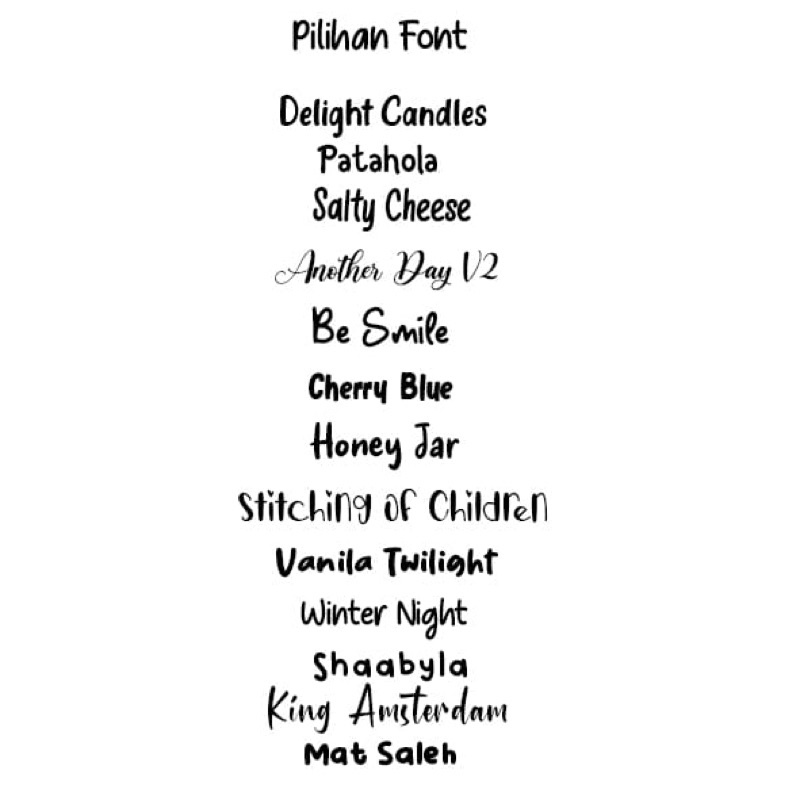 Pilihan Font
Delight Candles
Patahola
Salty Cheese
Another Day V2
Be Smile
Cherry Blue
Honey Jar
Stitching of Children
Vanila Twilight
Winter Night
Shaabyla
King Amsterdam
Mat Saleh